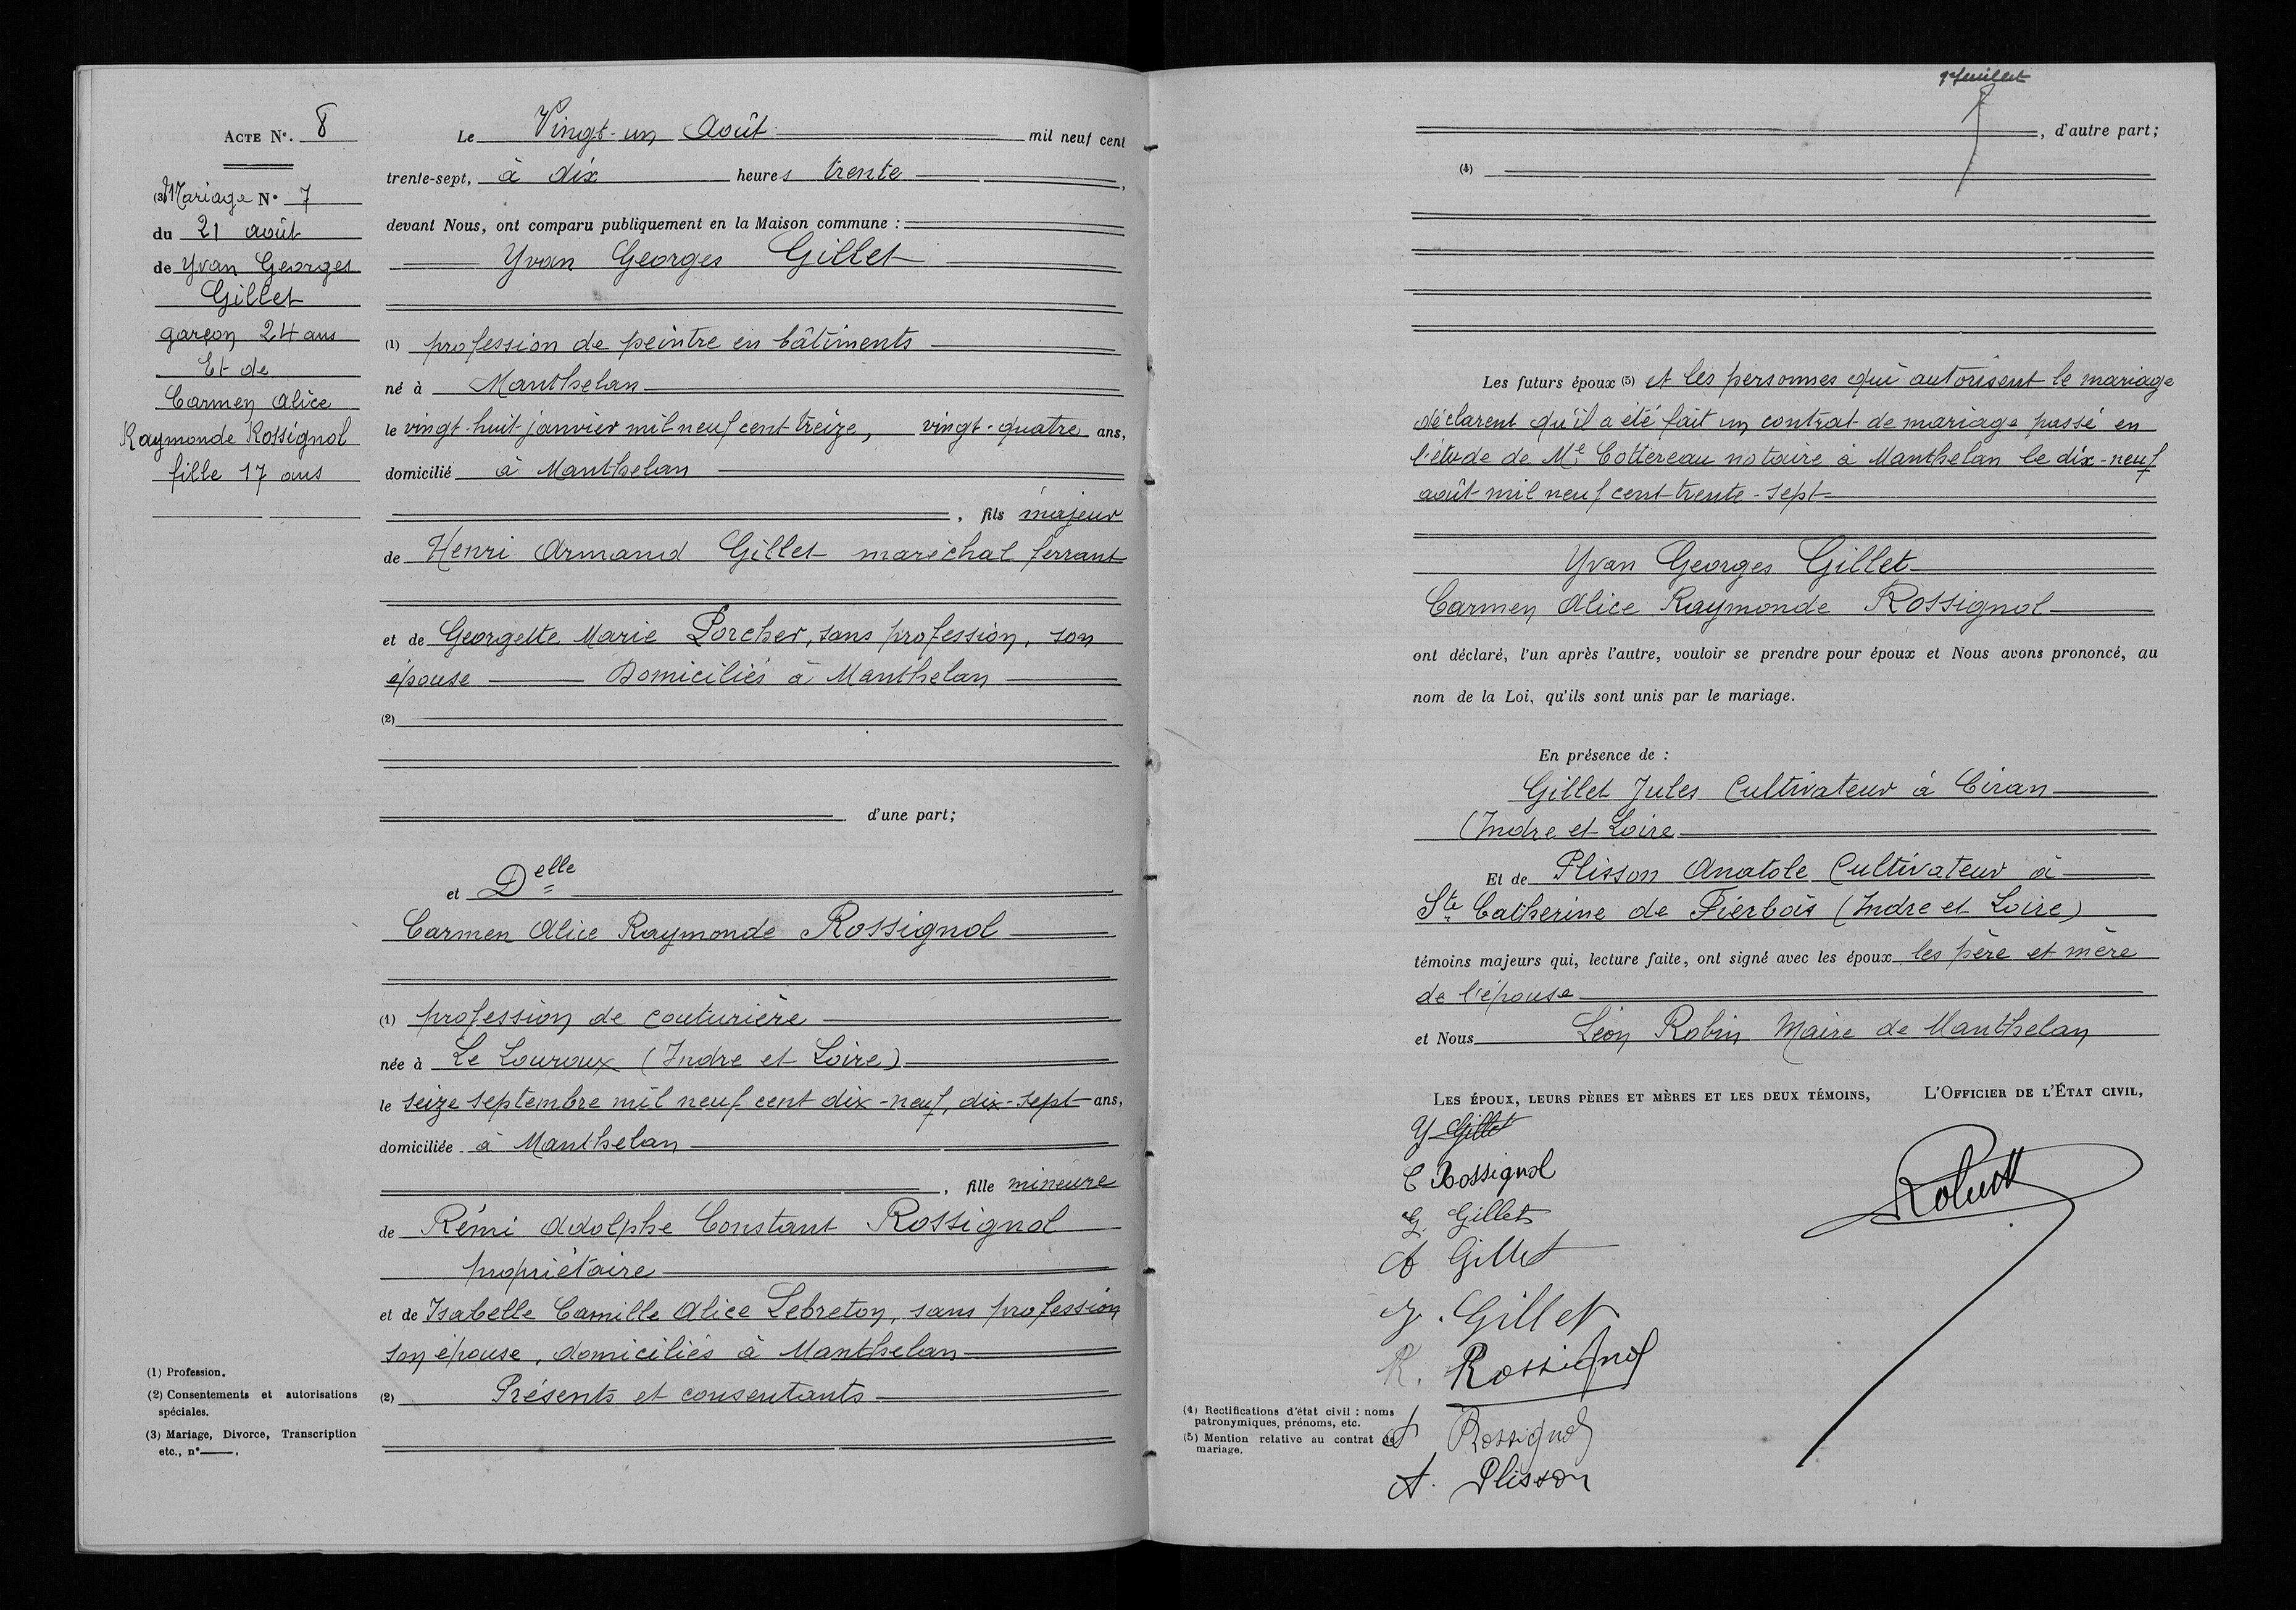 ACTE N°. 8
(3) Mariage N° 7
du 21 août
de Yvan Georges
Gillet
garçon 24 ans
Et de
Carmen Alice
Raymonde Rossignol
fille 17 ans
Le Vingt-un Août mil neuf cent
trente-sept, à dix heures trente,
devant Nous, ont comparu publiquement en la Maison commune :
Yvan Georges Gillet
(1) profession de peintre en bâtiments
né à Manthelan
le vingt-huit janvier mil neuf cent treize, vingt-quatre ans,
domicilié à Manthelan
, fils majeur
de Henri Armand Gillet maréchal ferrant
et de Georgette Marie Porcher, sans profession, son
épouse Domiciliés à Manthelan
(2)
d'une part;
et Delle
Carmen Alice Raymonde Rossignol
(1) profession de couturière
née à Le Louroux (Indre et Loire)
le seize septembre mil neuf cent dix-neuf, dix-sept ans,
domiciliée à Manthelan
, fille mineure
de Rémi Adolphe Constant Rossignol
propriétaire
et de Isabelle Camille Alice Lebreton, sans profession
son épouse, domiciliés à Manthelan
(2) Présents et consentants
(1) Profession.
(2) Consentements et autorisations
spéciales.
(3) Mariage, Divorce, Transcription
etc., n° .
, d'autre part;
(4)
Les futurs époux (5) et les personnes qui autorisent le mariage
déclarent qu'il a été fait un contrat de mariage passé en
l'étude de Me Cottereau notaire à Manthelan le dix-neuf
août mil neuf cent trente-sept
Yvan Georges Gillet
Carmen Alice Raymonde Rossignol
ont déclaré, l'un après l'autre, vouloir se prendre pour époux et Nous avons prononcé, au
nom de la Loi, qu'ils sont unis par le mariage.
En présence de :
Gillet Jules Cultivateur à Ciran
(Indre et Loire
Et de Plisson Anatole Cultivateur à
Ste Catherine de Fierbois (Indre et Loire)
témoins majeurs qui, lecture faite, ont signé avec les époux les père et mère
de l'épouse
et Nous Léon Robin Maire de Manthelan
LES ÉPOUX, LEURS PÈRES ET MÈRES ET LES DEUX TÉMOINS,
L'OFFICIER DE L'ÉTAT CIVIL,
Y Gillet
C Rossignol
G. Gillet
Gillet
J. Gillet
R. Rossignol
Rossignol
A. Plisson
(4) Rectifications d'état civil : noms
patronymiques, prénoms, etc.
(5) Mention relative au contrat de
mariage.